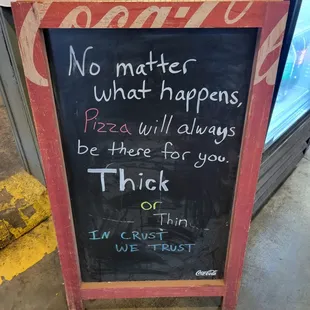 Coca-Cola
No matter
what happens,
Pizza will always
be there for you.
Thick
or
Thin
IN CRUST
WE TRUST
Coca-Cola